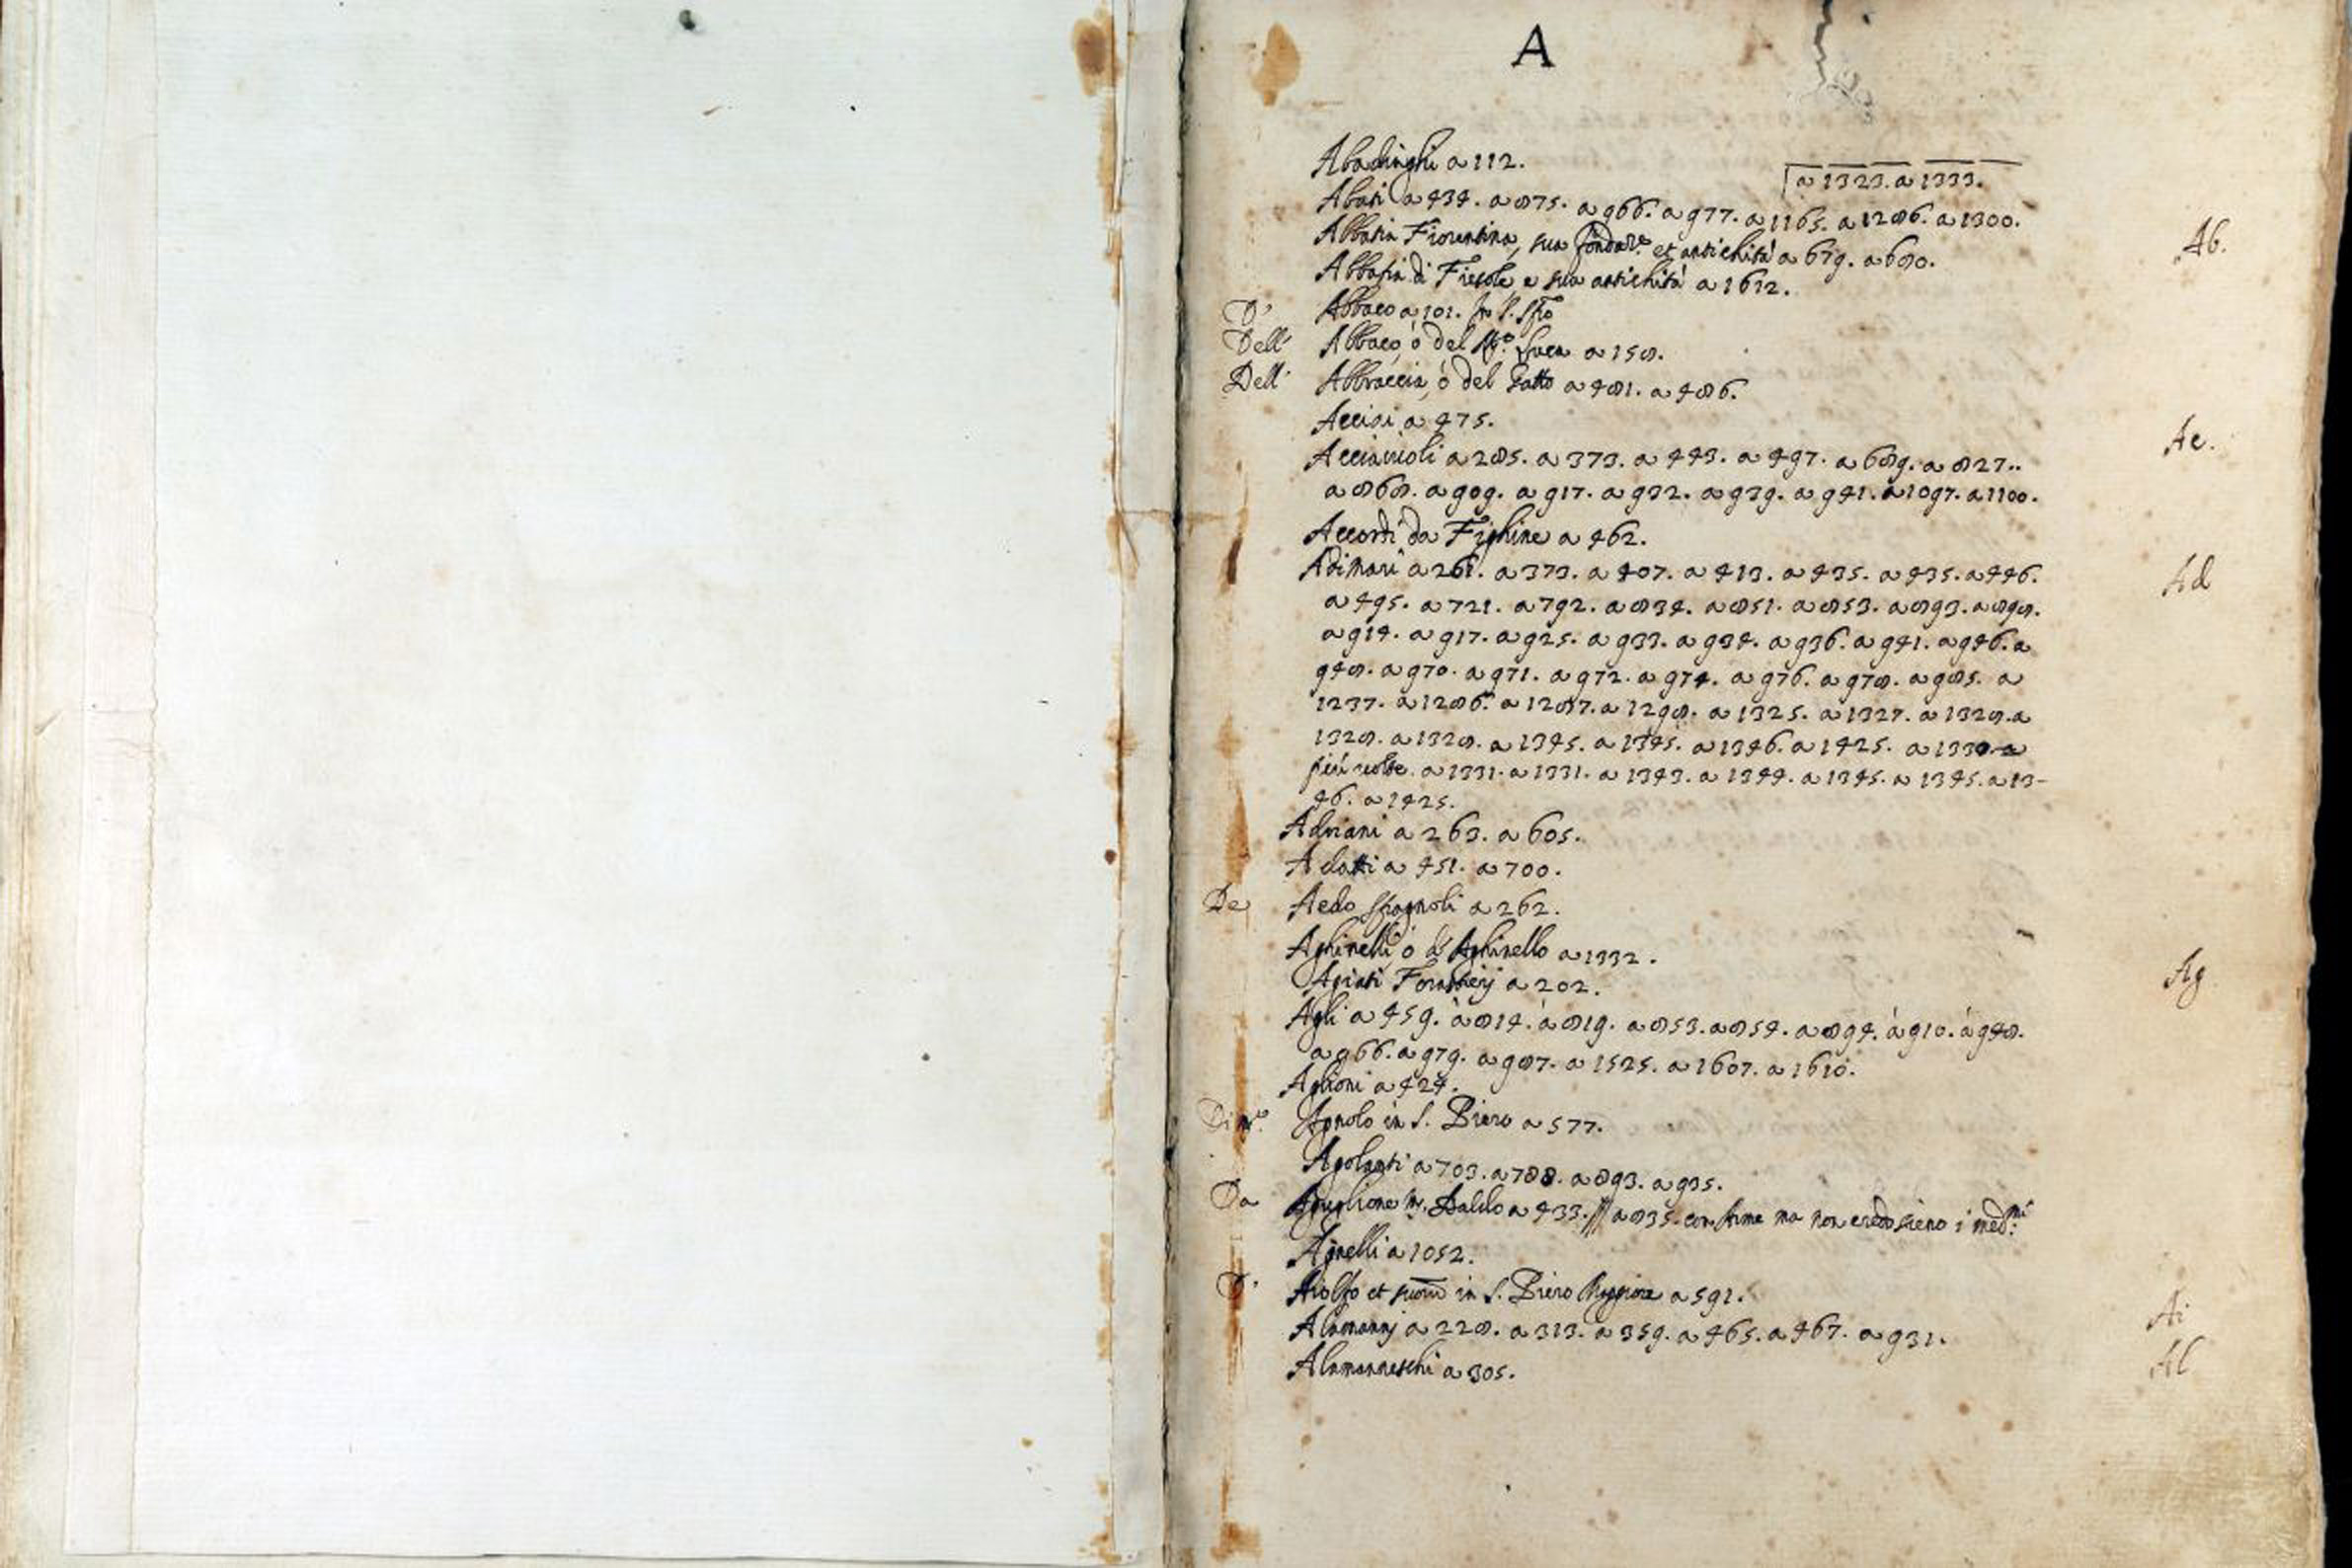 A
Abadinghi a 112.
a 1323. a 1333.
Abati a 434. a 875. a 966. a 977. a 1165. a 1286. a 1300.
Abbatia Fiorentina, sua fondat.ne et antichità a 679. a 680.
Ab.
Abbatia di Fiesole, e sua antichità a 1612.
D' Abbaco a 101. in S. Sto
Dell' Abbaco, ò del Mº. Luca a 158.
Dell' Abbraccia, ò del Gatto a 481. a 486.
Accisi a 475.
Ac.
Acciaiuoli a 285. a 373. a 443. a 497. a 689. a 827..
a 868. a 909. a 917. a 932. a 939. a 941. a 1097. a 1100.
Accorti da Fighine a 462.
Adimari a 261. a 373. a 407. a 413. a 435. a 435. a 446.
Ad
a 495. a 721. a 792. a 834. a 851. a 853. a 893. a 898.
a 914. a 917. a 925. a 933. a 934. a 936. a 941. a 946. a
948. a 970. a 971. a 972. a 974. a 976. a 978. a 985. a
1237. a 1286. a 1287. a 1298. a 1325. a 1327. a 1328. a
1328. a 1328. a 1345. a 1345. a 1346. a 1425. a 1330. a
più volte. a 1331. a 1331. a 1343. a 1344. a 1345. a 1345. a 13-
46. a 1425.
Adriani a 263. a 605.
Adatti a 451. a 700.
De Aedo Spagnoli a 262.
Aghinelli, ò d' Aghinello a 1332.
Ag
Agiati Forastierj a 202.
Agli a 459. à 814. à 819. a 853. a 854. a 894. à 910. à 948.
a 966. a 979. a 987. a 1525. a 1607. a 1610.
Aglioni a 424.
Di m.º Agnolo in S. Piero a 577.
Agolanti a 703. a 788. a 893. a 935.
Da Aguglione m. Baldo a 433. // a 835. con arme ma non credo sieno i med.mi
Agnelli a 1052.
D' Aiolfo et suorum in S. Piero Maggiore a 591.
Ai
Alamannj a 228. a 313. a 359. a 465. a 467. a 931.
Al
Alamanneschi a 305.